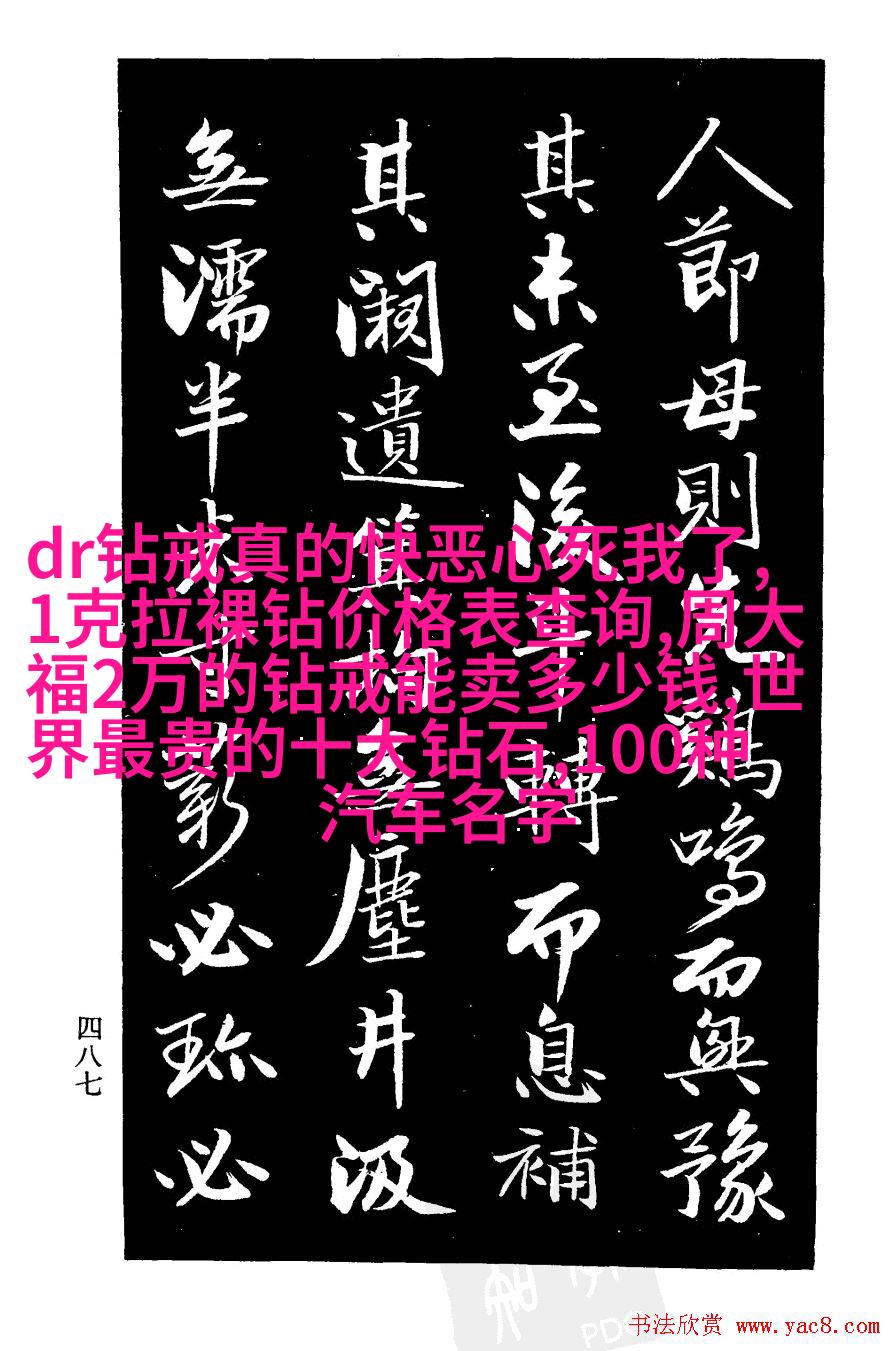 人節母則鷄鳴而興豫
其未至後轉而息補
其闕遺塵井汲
無濡半必珍必
dr钻戒真的快恶心死我了,
1克拉裸钻价格表查询,周大
福2万的钻戒能卖多少钱,世
界最贵的十大钻石,100种
汽车名字
四八七
书法欣赏 www.yac8.com